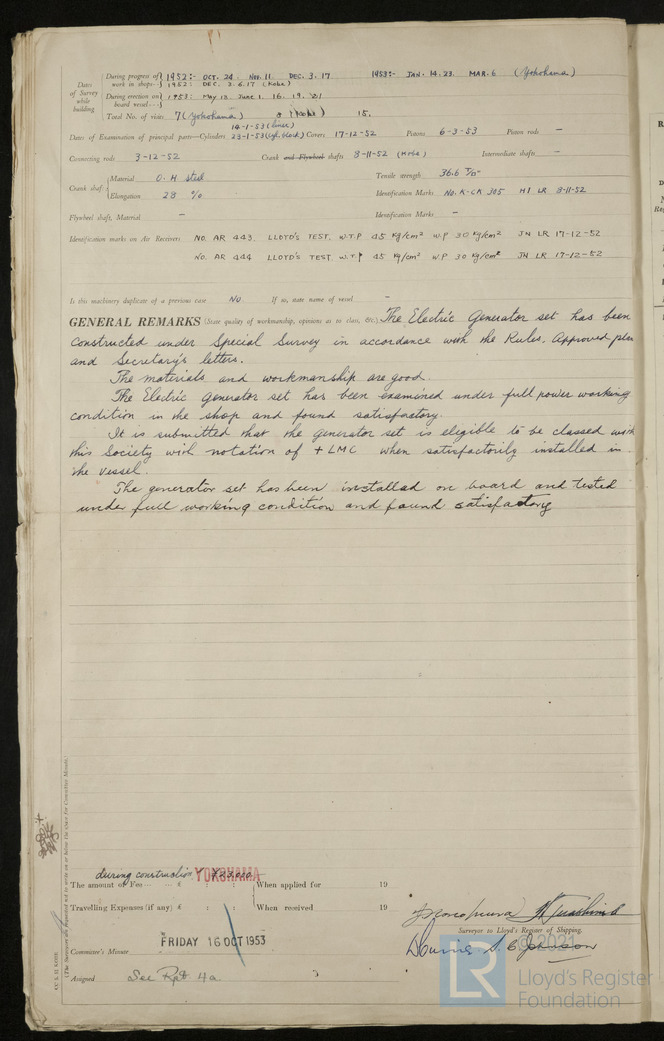 During progress of work in shops-- 1952:- OCT. 24. NOV. 11. DEC. 3. 17. 1953:- JAN. 14. 23. MAR. 6 (Yokohama)
1952: DEC. 2. 6. 17 (Kobe)
Dates of Survey while building
During erection on board vessel--- 1953: MAY 13. JUNE 1. 16. 19.
Total No. of visits 7 (Yokohama) 15.
14-1-53 (liner)
Dates of Examination of principal parts—Cylinders 23-1-53 (Cyl. block) Covers 17-12-52 Pistons 6-3-53 Piston rods —
Connecting rods 3-12-52 Crank and Flywheel shafts 8-11-52 (Kobe) Intermediate shafts —
Crank shaft Material O. H steel Tensile strength 36.6
Elongation 28 % Identification Marks NO. K-CK 305 HI LR 8-11-52
Flywheel shaft, Material — Identification Marks —
Identification marks on Air Receivers NO. AR 443. LLOYD'S TEST. W.T.P 45 Kg/cm² W.P 30 Kg/cm² JN LR 17-12-52
NO. AR 444 LLOYD'S TEST. W.T.P 45 Kg/cm² W.P 30 Kg/cm² JN LR 17-12-52
Is this machinery duplicate of a previous case No. If so, state name of vessel —
GENERAL REMARKS (State quality of workmanship, opinions as to class, &c.) The Electric Generator set has been
constructed under Special Survey in accordance with the Rules, Approved plan
and Secretary's letters.
The materials and workmanship are good.
The Electric Generator set has been examined under full power working
condition in the shop and found satisfactory.
It is submitted that the generator set is eligible to be classed with
this Society with notation of + LMC when satisfactorily installed in
the vessel.
The generator set has been installed on board and tested
under full working condition and found satisfactory
during construction YOKOHAMA
The amount of Fee £ : : When applied for 19
Travelling Expenses (if any) £ : : When received 19
Surveyor to Lloyd's Register of Shipping.
Committee's Minute FRIDAY 16 OCT 1953
Assigned See Rpt. 4a
(The Surveyors are requested not to write on or below the space for Committee's Minute.)
© 2021
LR
Lloyd's Register
Foundation